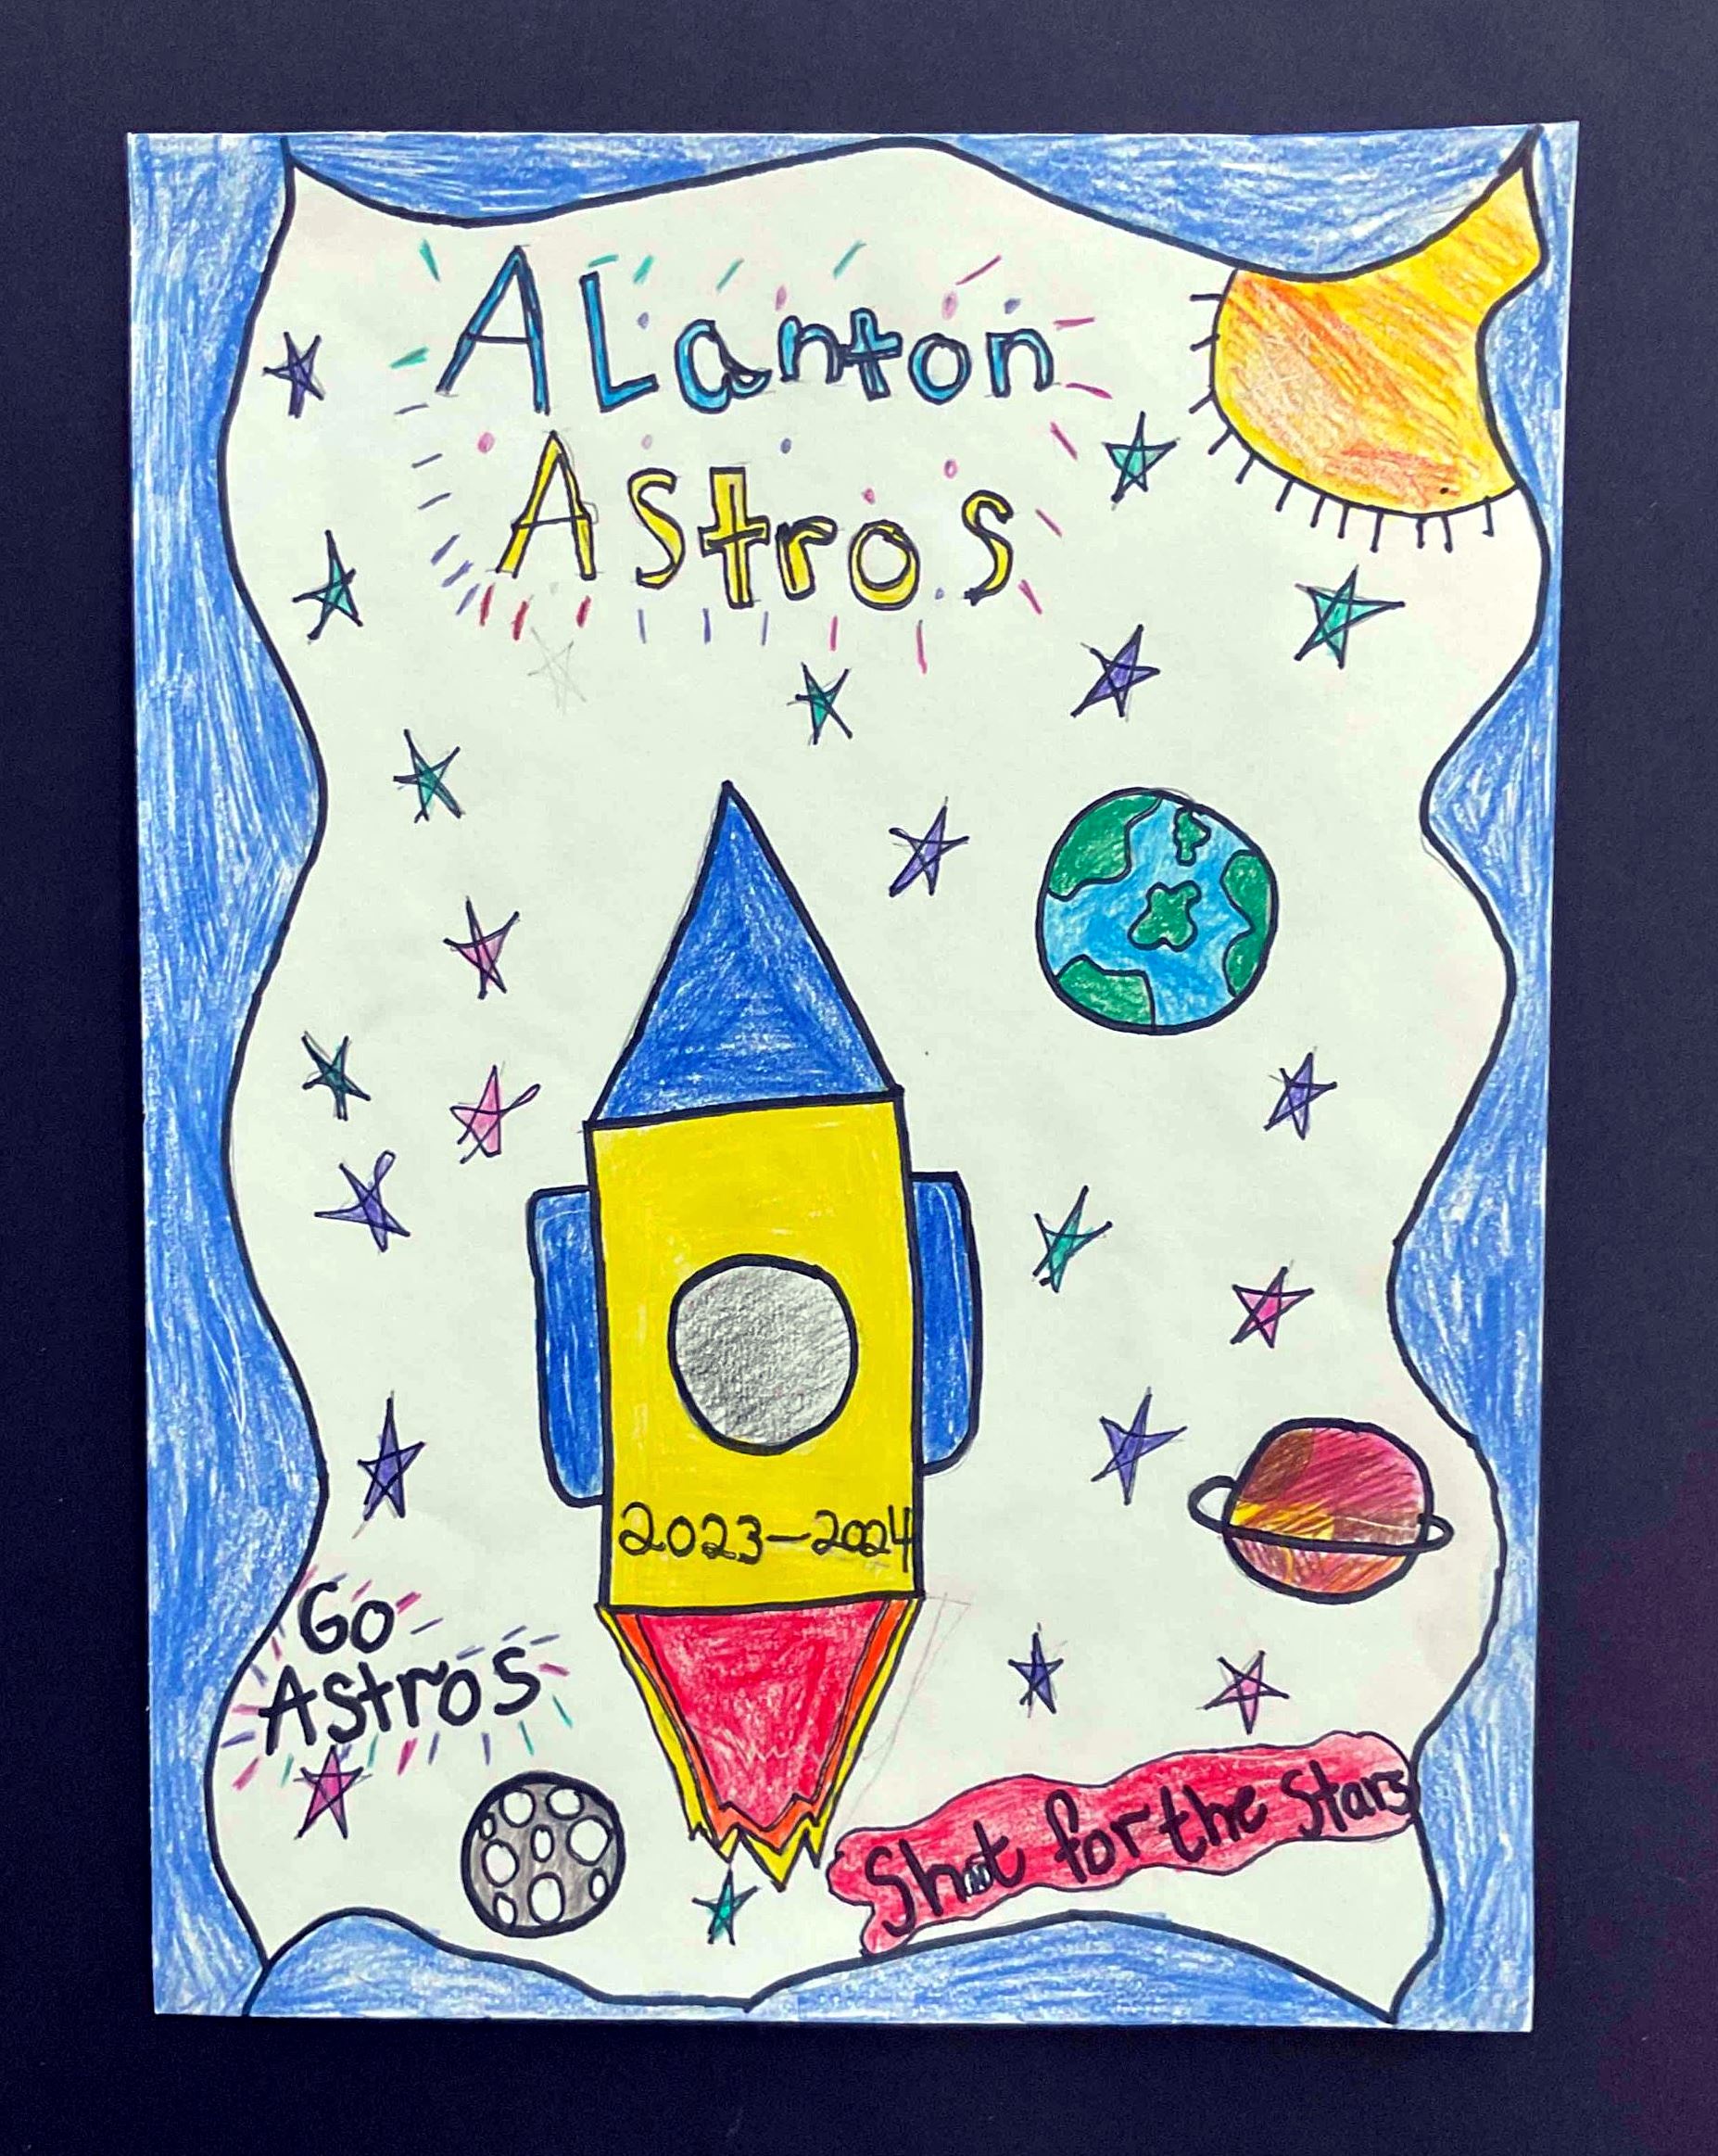 ALanton
Astros
2023-2024
Go
Astros
Shot for the Stars